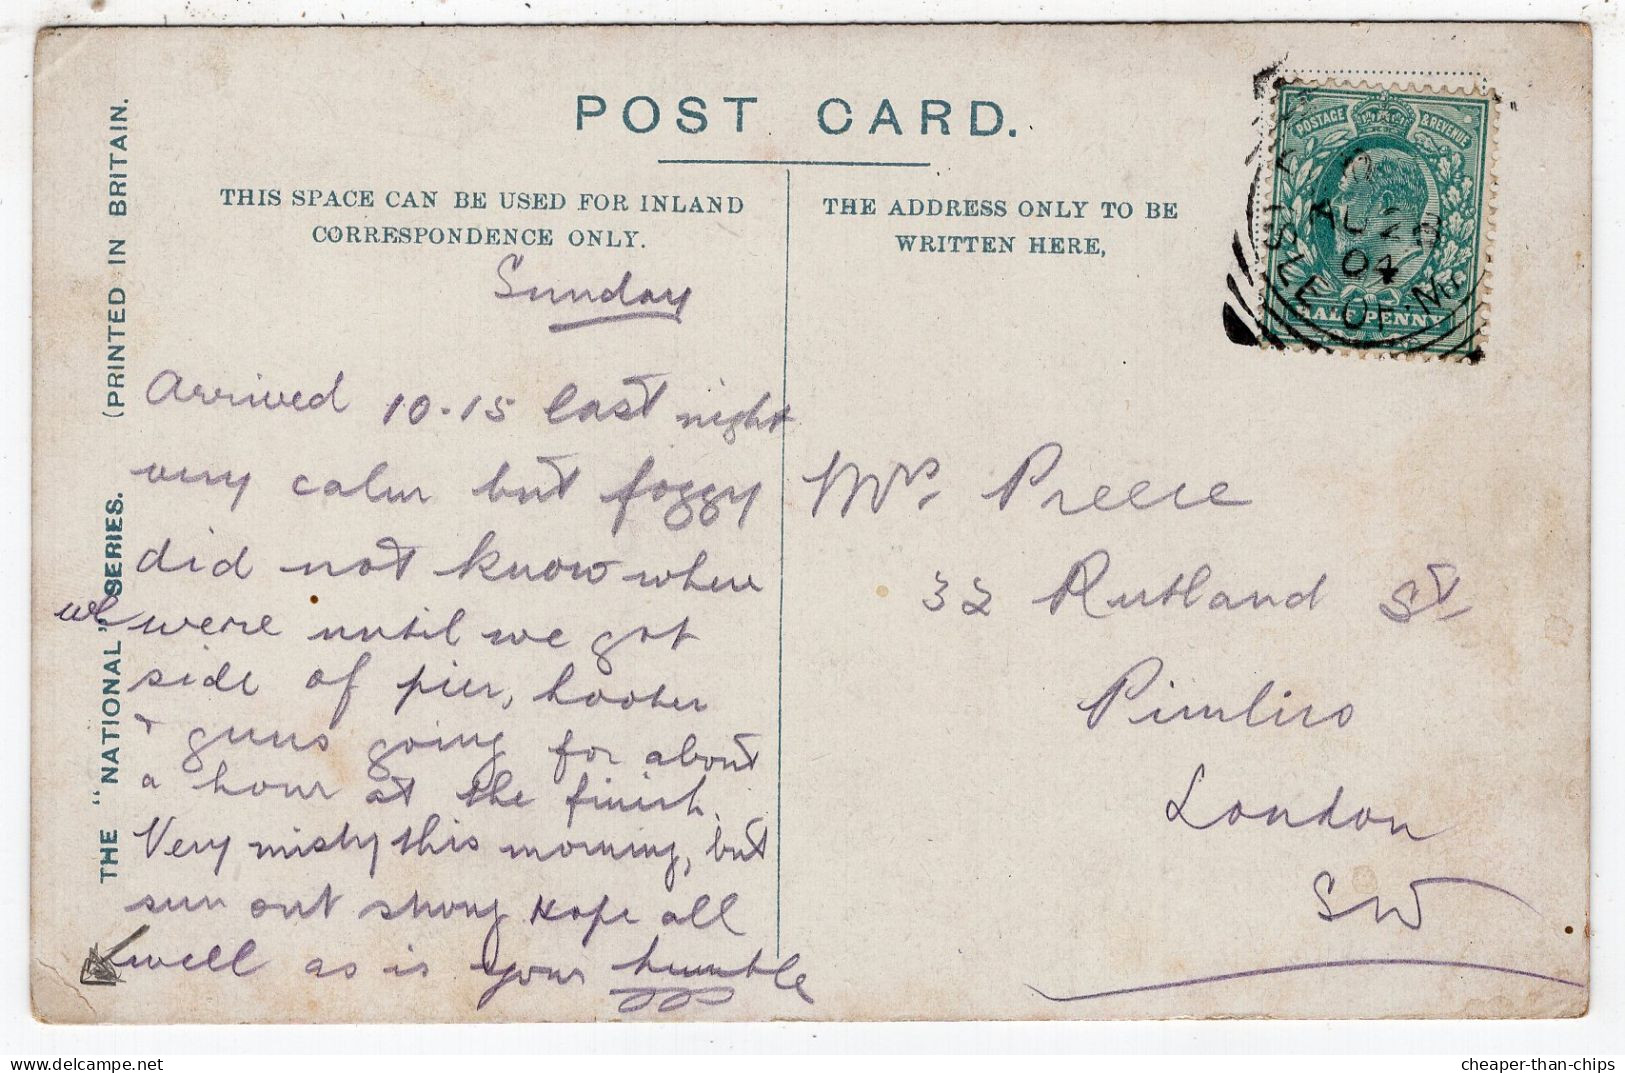 POST CARD.
THIS SPACE CAN BE USED FOR INLAND
CORRESPONDENCE ONLY.
THE ADDRESS ONLY TO BE
WRITTEN HERE,
THE "NATIONAL" SERIES. (PRINTED IN BRITAIN.
POSTAGE & REVENUE
HALF PENNY
AU 28
04
ISLE OF MA
Sunday
Arrived 10-15 last night
very calm but foggy
did not know where
we were until we got
side of pier, hooter
+ guns going for about
a hour at the finish.
Very misty this morning, but
sun out strong hope all
well as is your humble
Mrs. Preece
32 Rutland St
Pimlico
London
SW
cheaper-than-chips